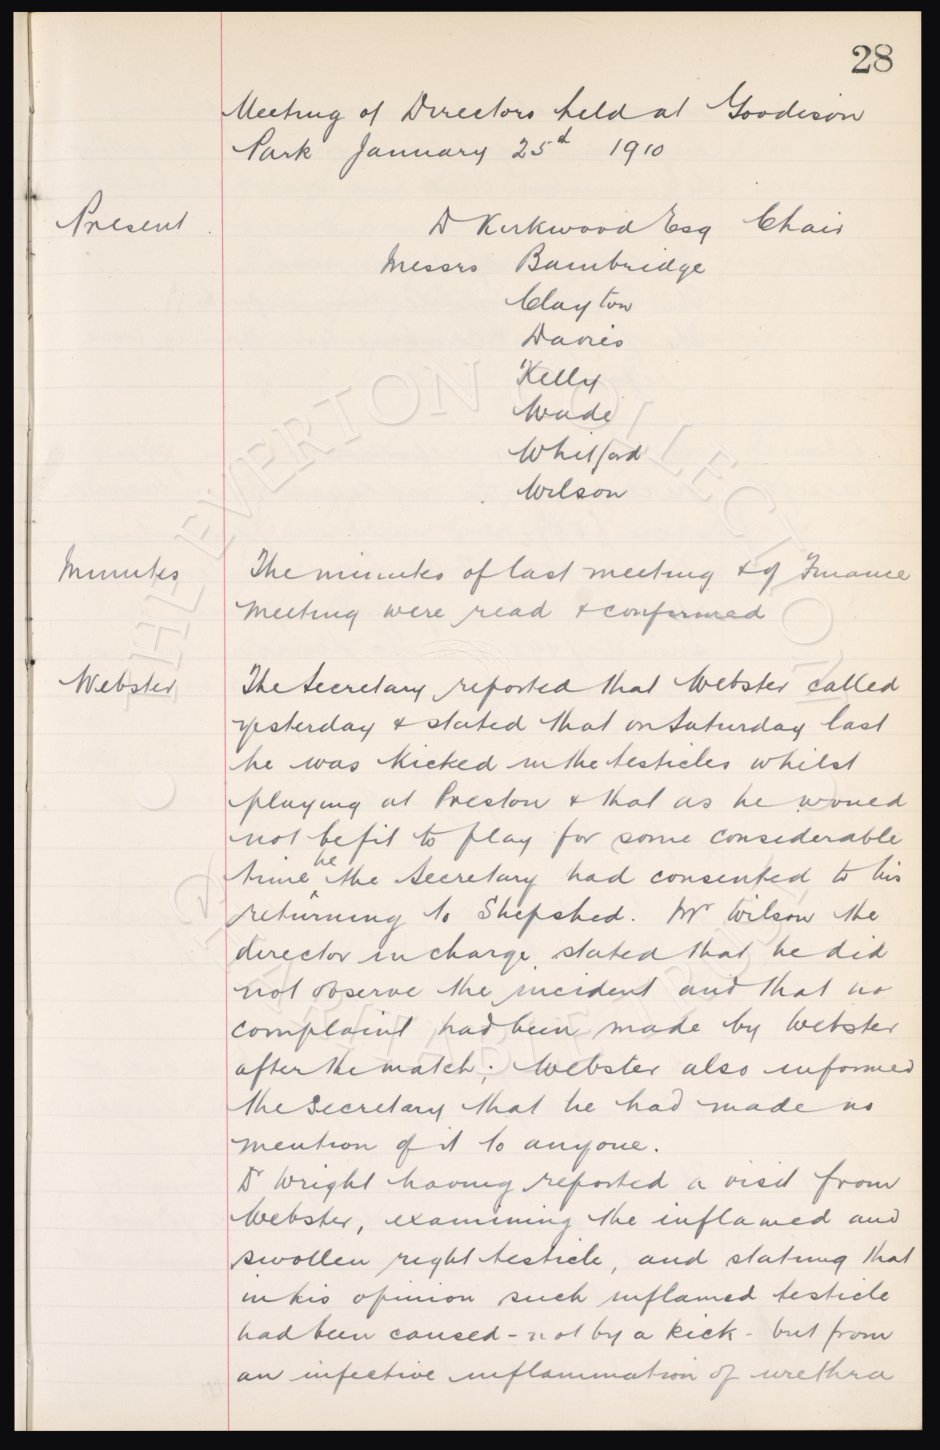 28
Meeting of Directors held at Goodison
Park January 25th 1910
Present
D Kirkwood Esq Chair
Messrs Bainbridge
Clayton
Davies
Kelly
Wade
Whitford
Wilson
Minutes
The minutes of last meeting & of Finance
Meeting were read & confirmed
Webster
The Secretary reported that Webster called
yesterday & stated that on Saturday last
he was kicked in the testicles whilst
playing at Preston & that as he would
not be fit to play for some considerable
time he the Secretary had consented to his
returning to Shepshed. Mr Wilson the
director in charge stated that he did
not observe the incident and that no
complaint had been made by Webster
after the match; Webster also informed
the Secretary that he had made no
mention of it to anyone.
Dr Wright having reported a visit from
Webster, examining the inflamed and
swollen right testicle, and stating that
in his opinion such inflamed testicle
had been caused - not by a kick - but from
an infective inflammation of urethra
THE EVERTON COLLECTION